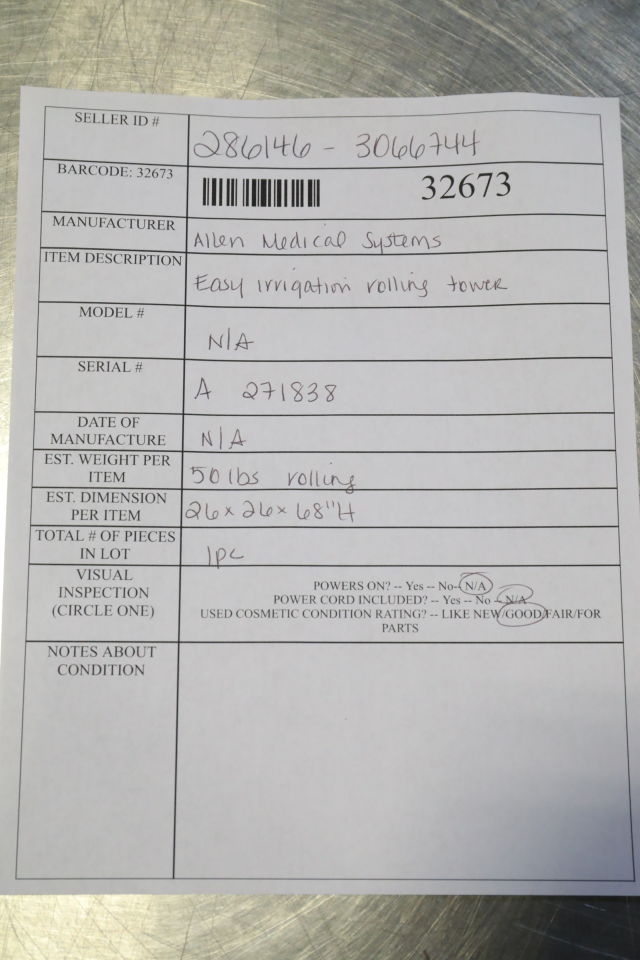 SELLER ID #
286146 - 3066744
BARCODE: 32673
32673
MANUFACTURER
Allen Medical Systems
ITEM DESCRIPTION
Easy irrigation rolling tower
MODEL #
N/A
SERIAL #
A 271838
DATE OF
MANUFACTURE
N/A
EST. WEIGHT PER
ITEM
50 lbs rolling
EST. DIMENSION
PER ITEM
26 x 26 x 68"H
TOTAL # OF PIECES
IN LOT
1pc
VISUAL
INSPECTION
(CIRCLE ONE)
POWERS ON? -- Yes -- No--N/A
POWER CORD INCLUDED? -- Yes -- No -- N/A
USED COSMETIC CONDITION RATING? -- LIKE NEW/GOOD/FAIR/FOR
PARTS
NOTES ABOUT
CONDITION